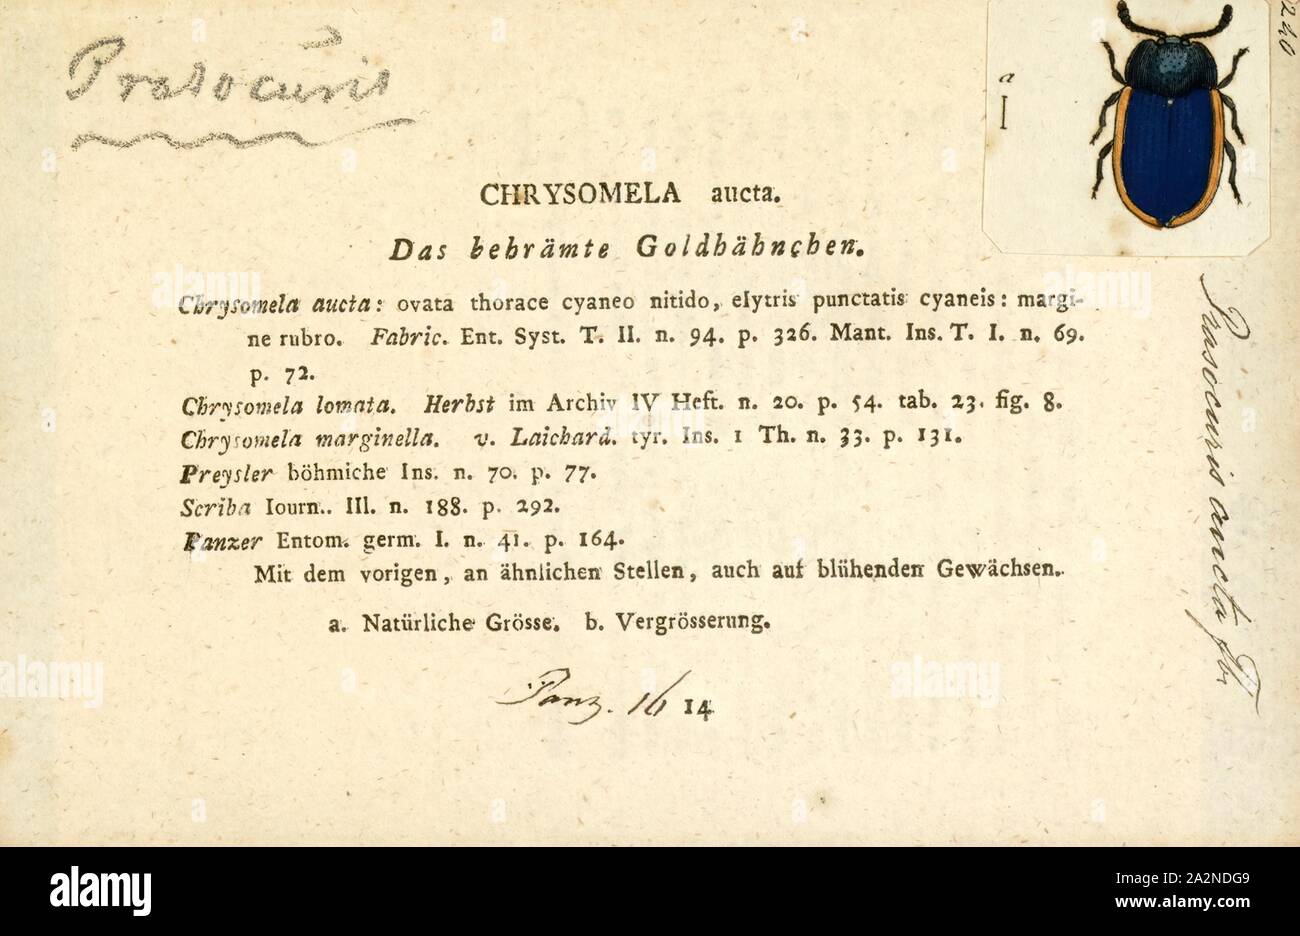 Prasocuris
240
a
CHRYSOMELA aucta.
Das bebrämte Goldhähnchen.
Chrysomela aucta: ovata thorace cyaneo nitido, elytris punctatis cyaneis: margi-
ne rubro. Fabric. Ent. Syst. T. II. n. 94. p. 326. Mant. Ins. T. I. n. 69.
p. 72.
Chrysomela lomata. Herbst im Archiv IV Heft. n. 20. p. 54. tab. 23. fig. 8.
Chrysomela marginella. v. Laichard. tyr. Ins. 1 Th. n. 33. p. 131.
Preysler böhmiche Ins. n. 70. p. 77.
Scriba Iourn.. III. n. 188. p. 292.
Panzer Entom. germ. I. n. 41. p. 164.
Mit dem vorigen, an ähnlichen Stellen, auch auf blühenden Gewächsen.
a. Natürliche Grösse. b. Vergrösserung.
Panz. 16 14
Prasocuris aucta
alamy
alamy
Image ID: A2NDG9
www.alamy.com